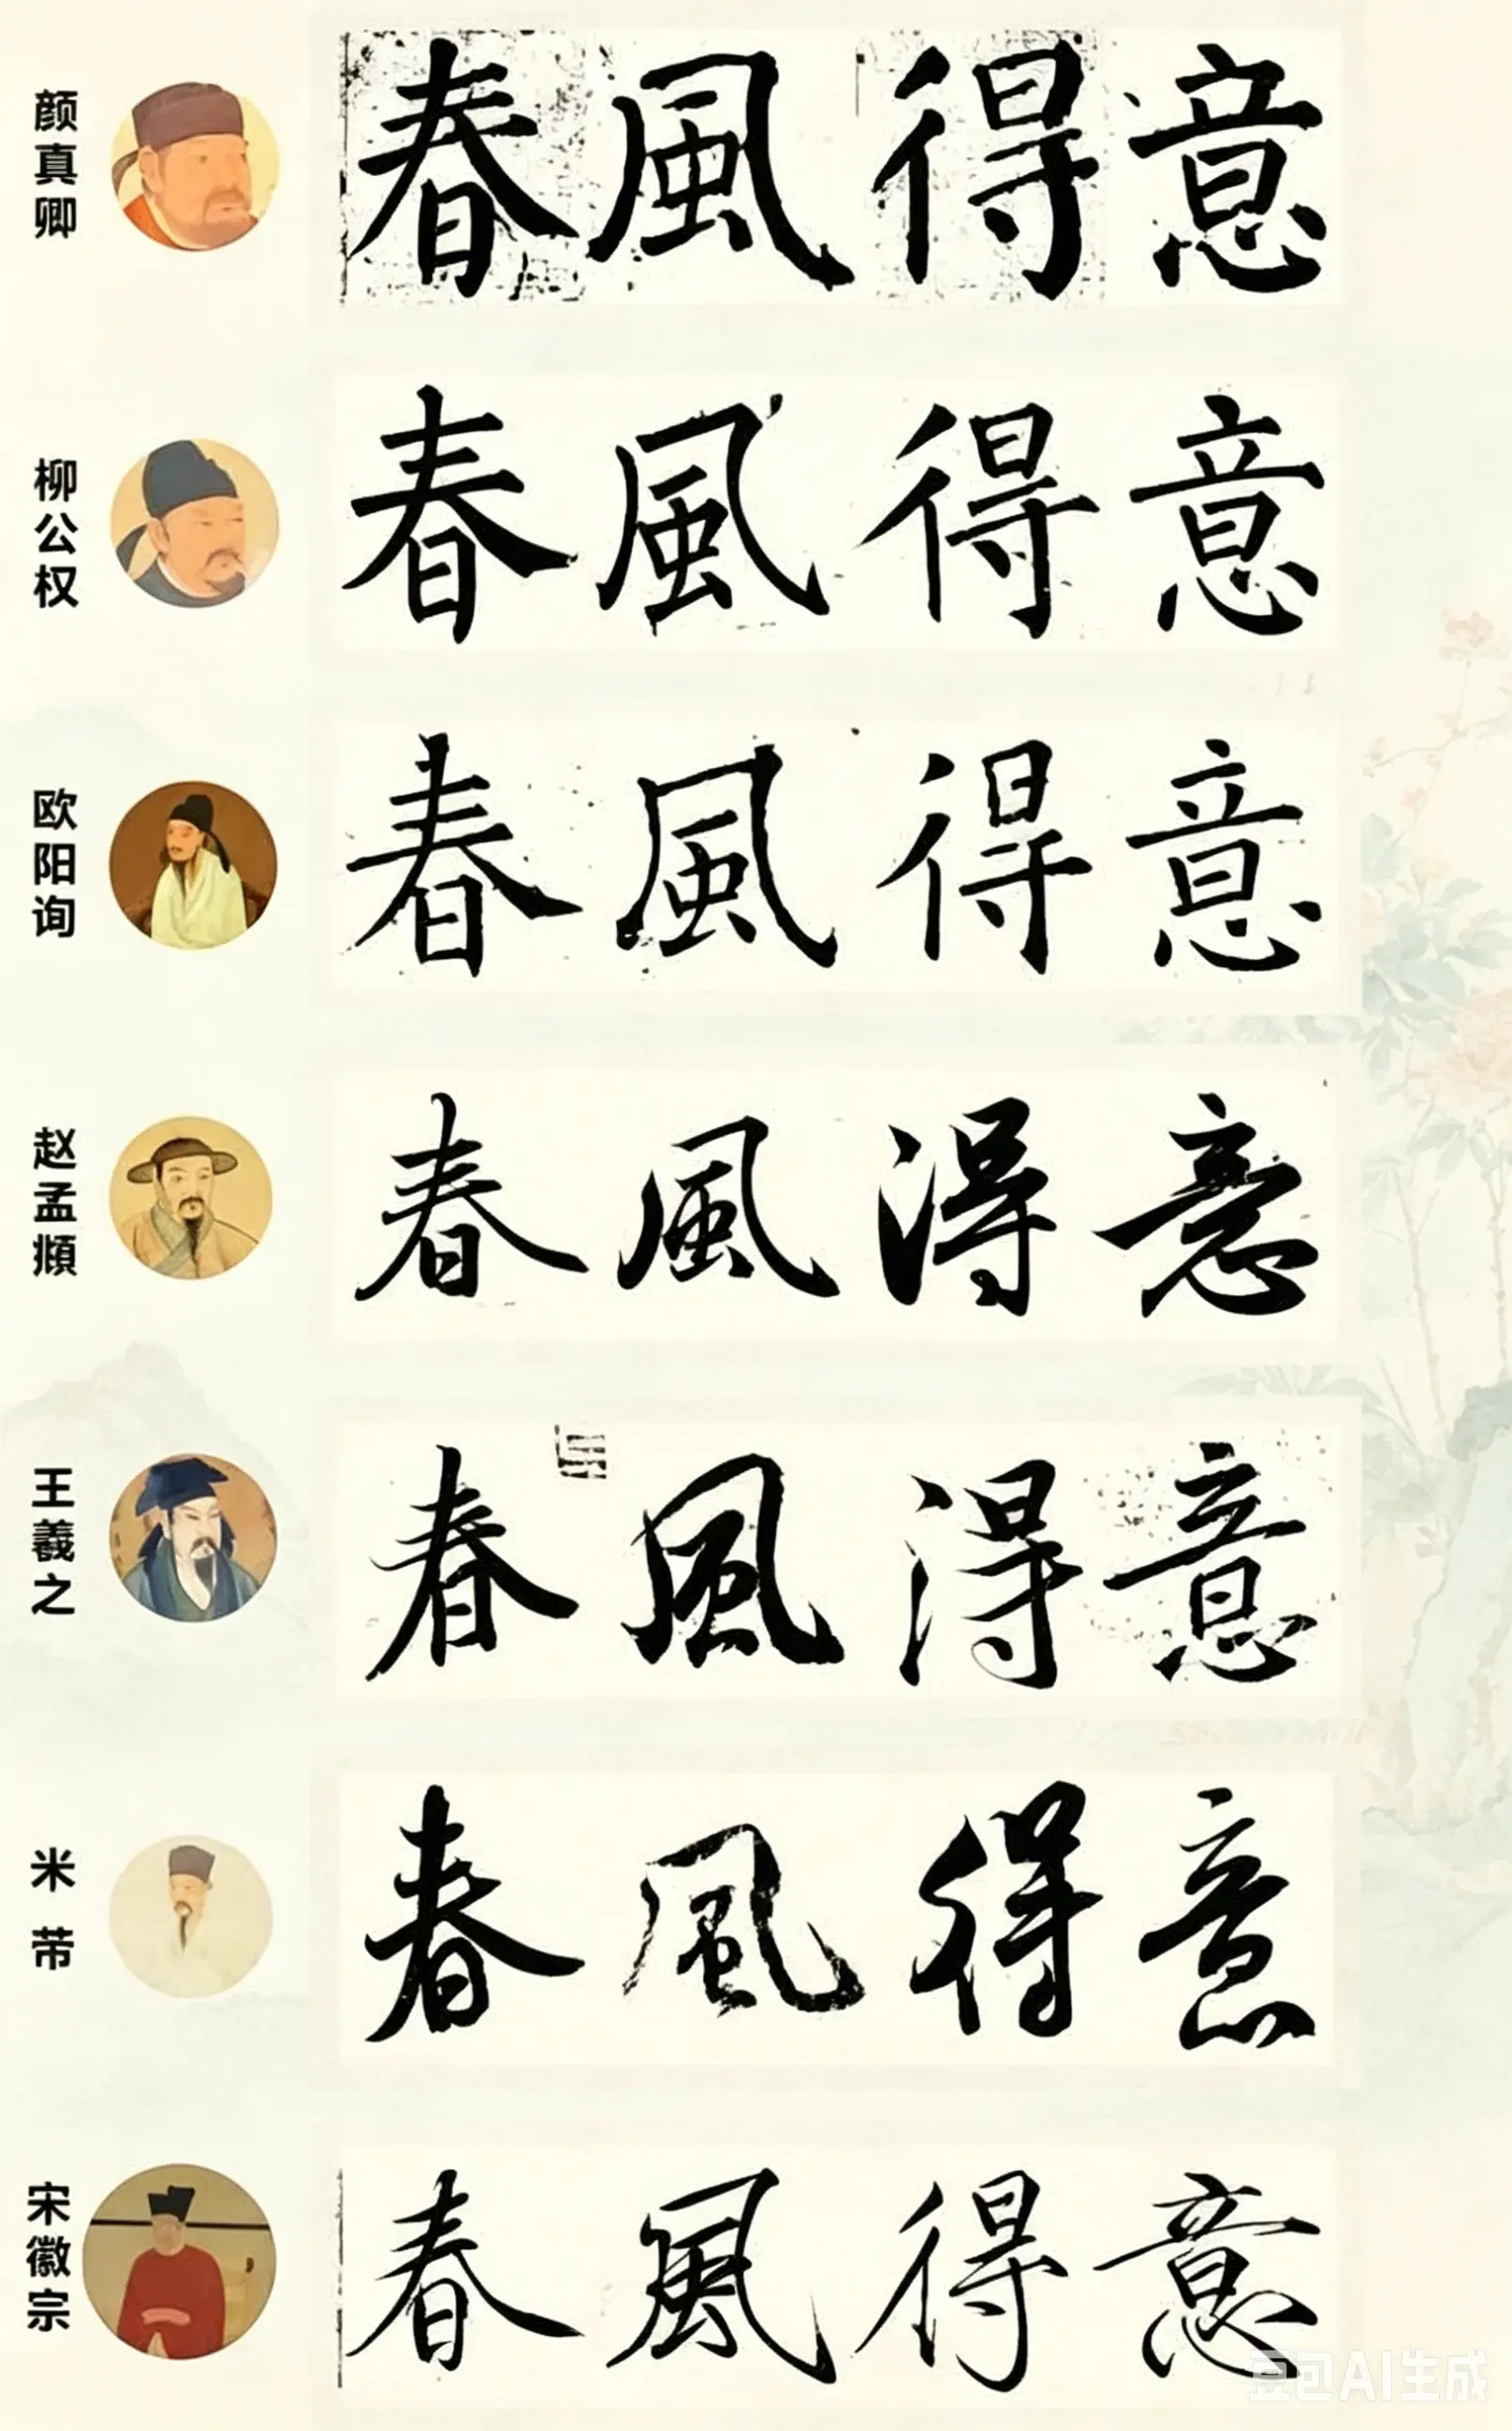 颜真卿
春風得意
柳公权
春風得意
欧阳询
春風得意
赵孟頫
春風得意
王羲之
春風得意
米芾
春風得意
宋徽宗
春風得意
豆包AI生成